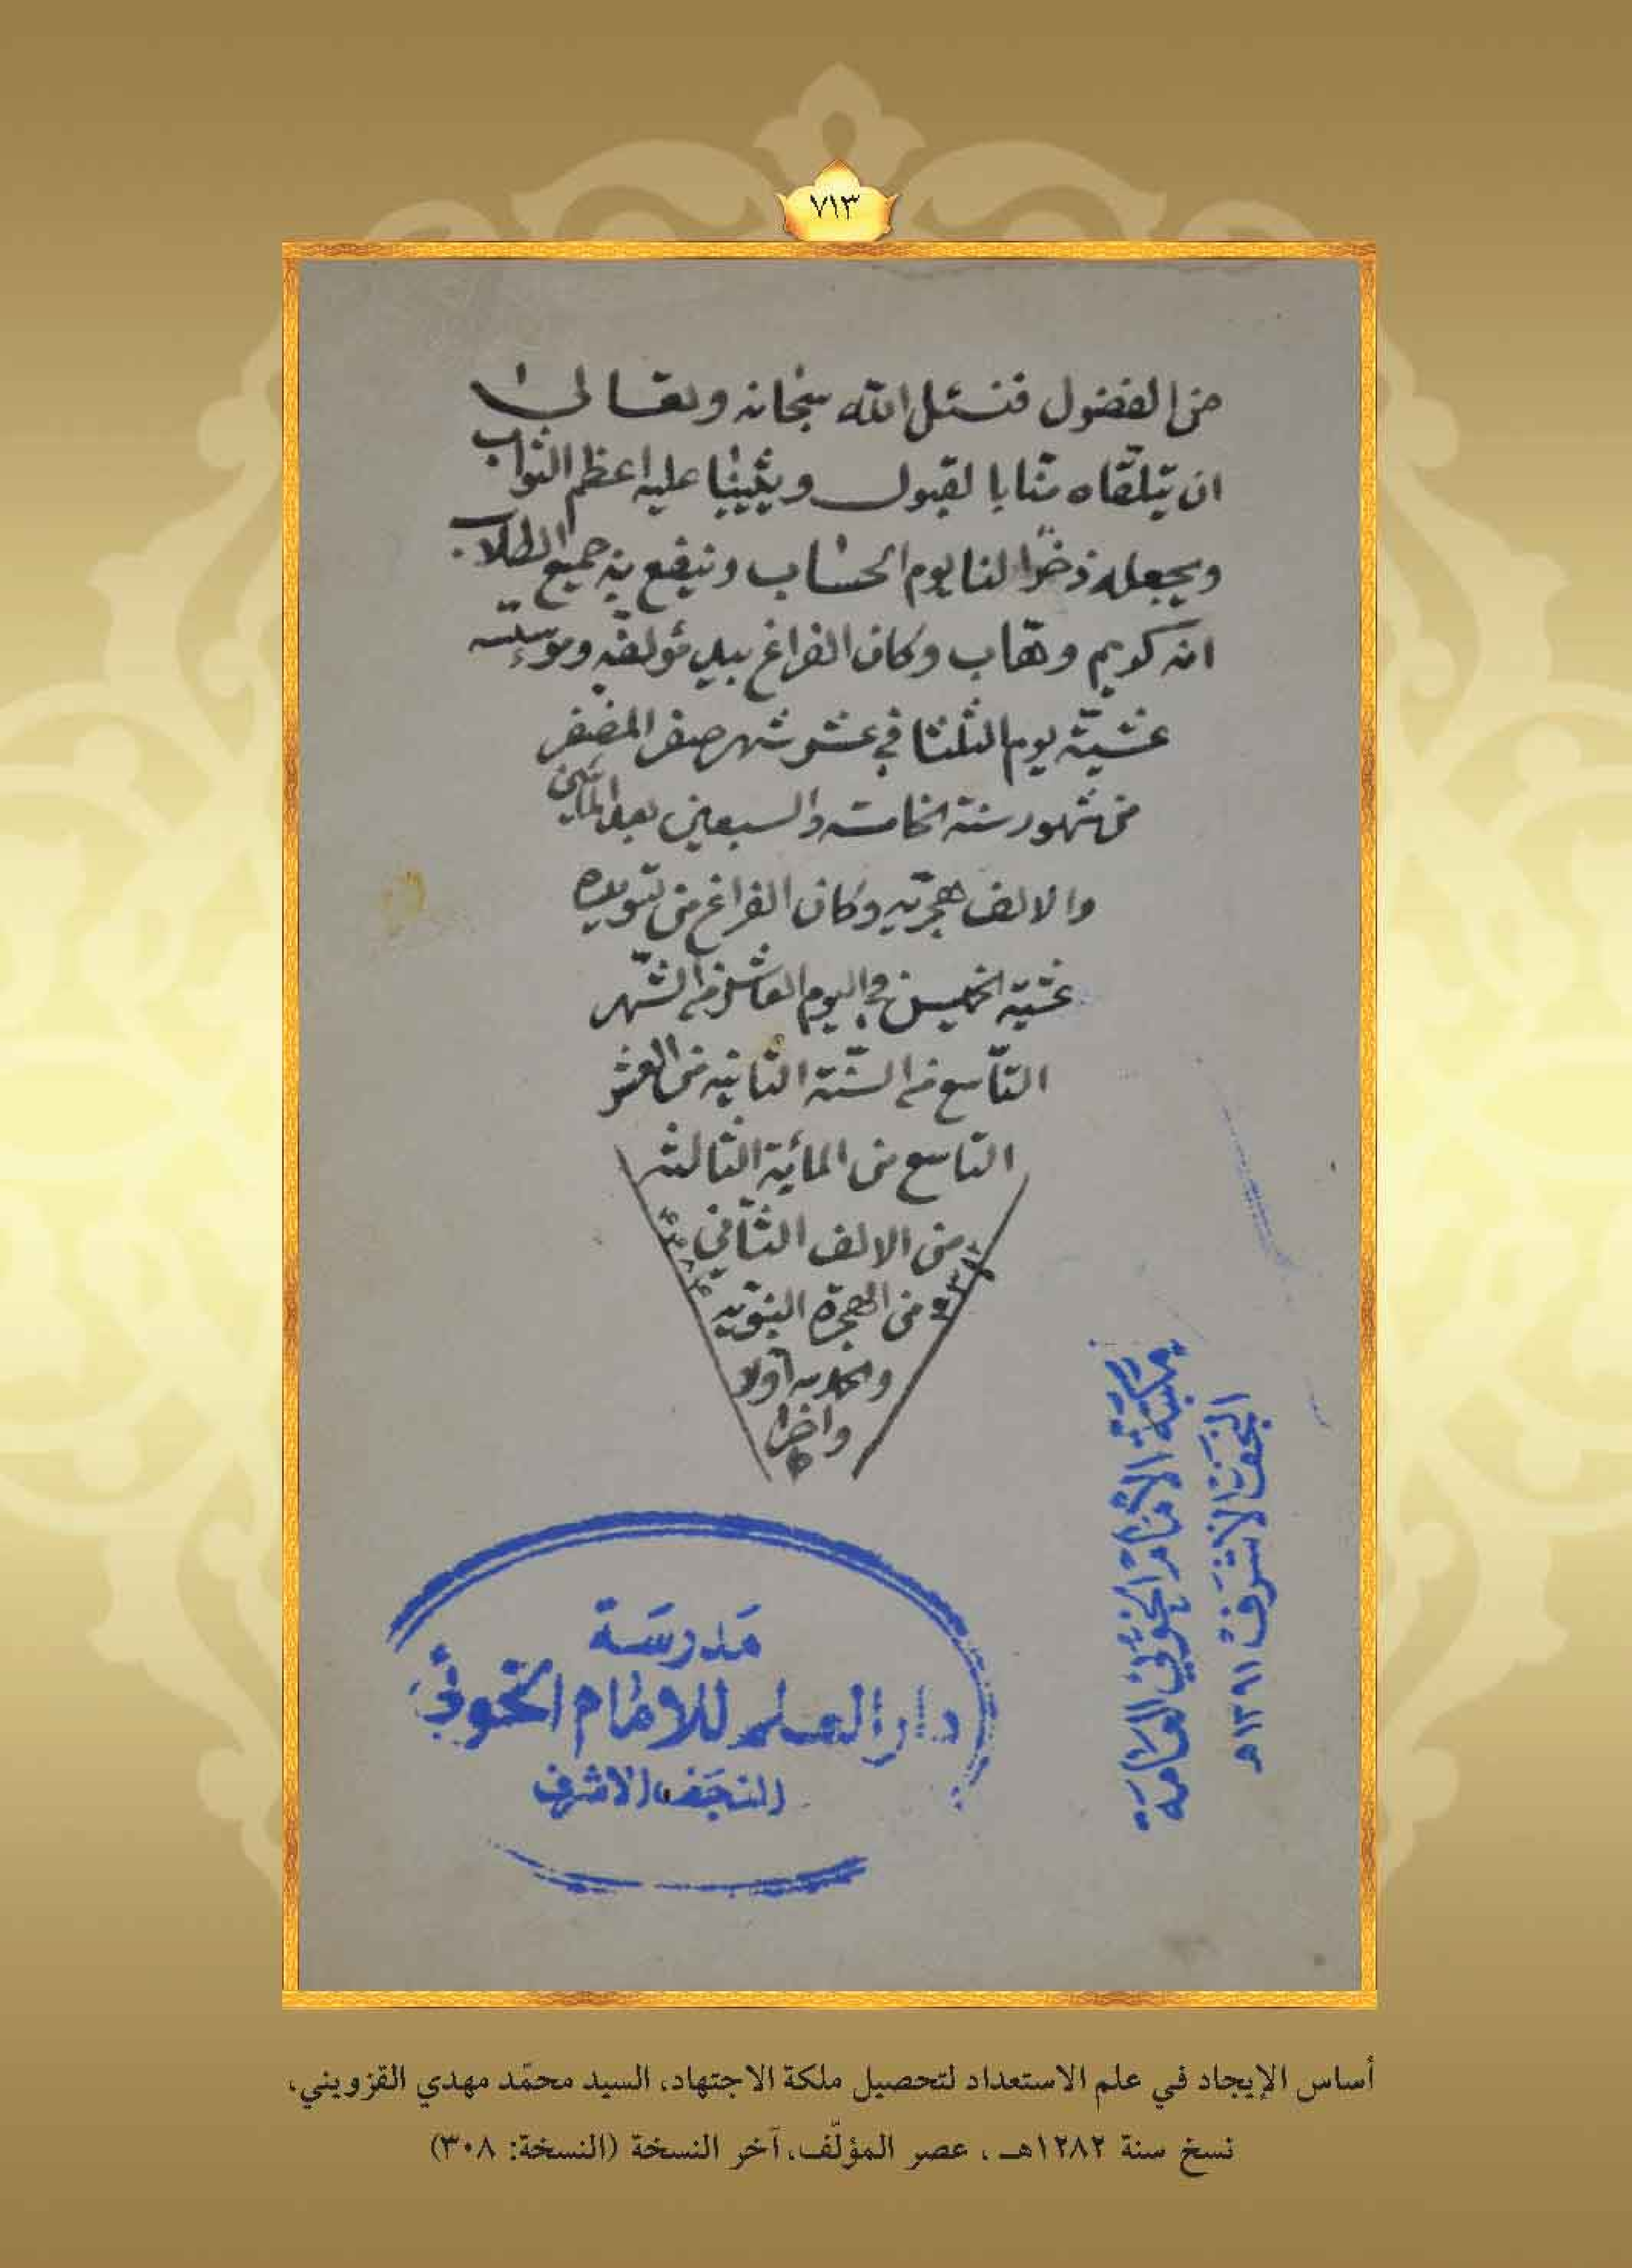 ٧١٣
من الفضول فنسئل الله سبحانه وتعالى
ان يتلقاه منا بالقبول ويثيبنا عليه اعظم الثواب
ويجعله ذخرا لنا يوم الحساب وينفع به جميع الطلاب
انه كريم وهاب وكان الفراغ بيد مؤلفه ومؤسسه
عشية يوم الثلثا في عشر شهر صفر المضفر
من شهور سنة الخامسة والسبعين بعد المأتين
والالف هجرية وكان الفراغ من تسويده
عشية الخميس في اليوم العاشر من الشهر
التاسع من السنة الثانية من العشر
التاسع من المائة الثالثة
من الالف الثاني
من الهجرة النبوية
والحمد لله أولا
واخرا
مدرسة
دار العلم للامام الخوئي
النجف الاشرف
مكتبة الامام الخوئي العامة
النجف الاشرف ١٣٩١هـ
أساس الإيجاد في علم الاستعداد لتحصيل ملكة الاجتهاد، السيد محمّد مهدي القزويني،
نسخ سنة ١٢٨٢هـ ، عصر المؤلّف، آخر النسخة (النسخة: ٣٠٨)